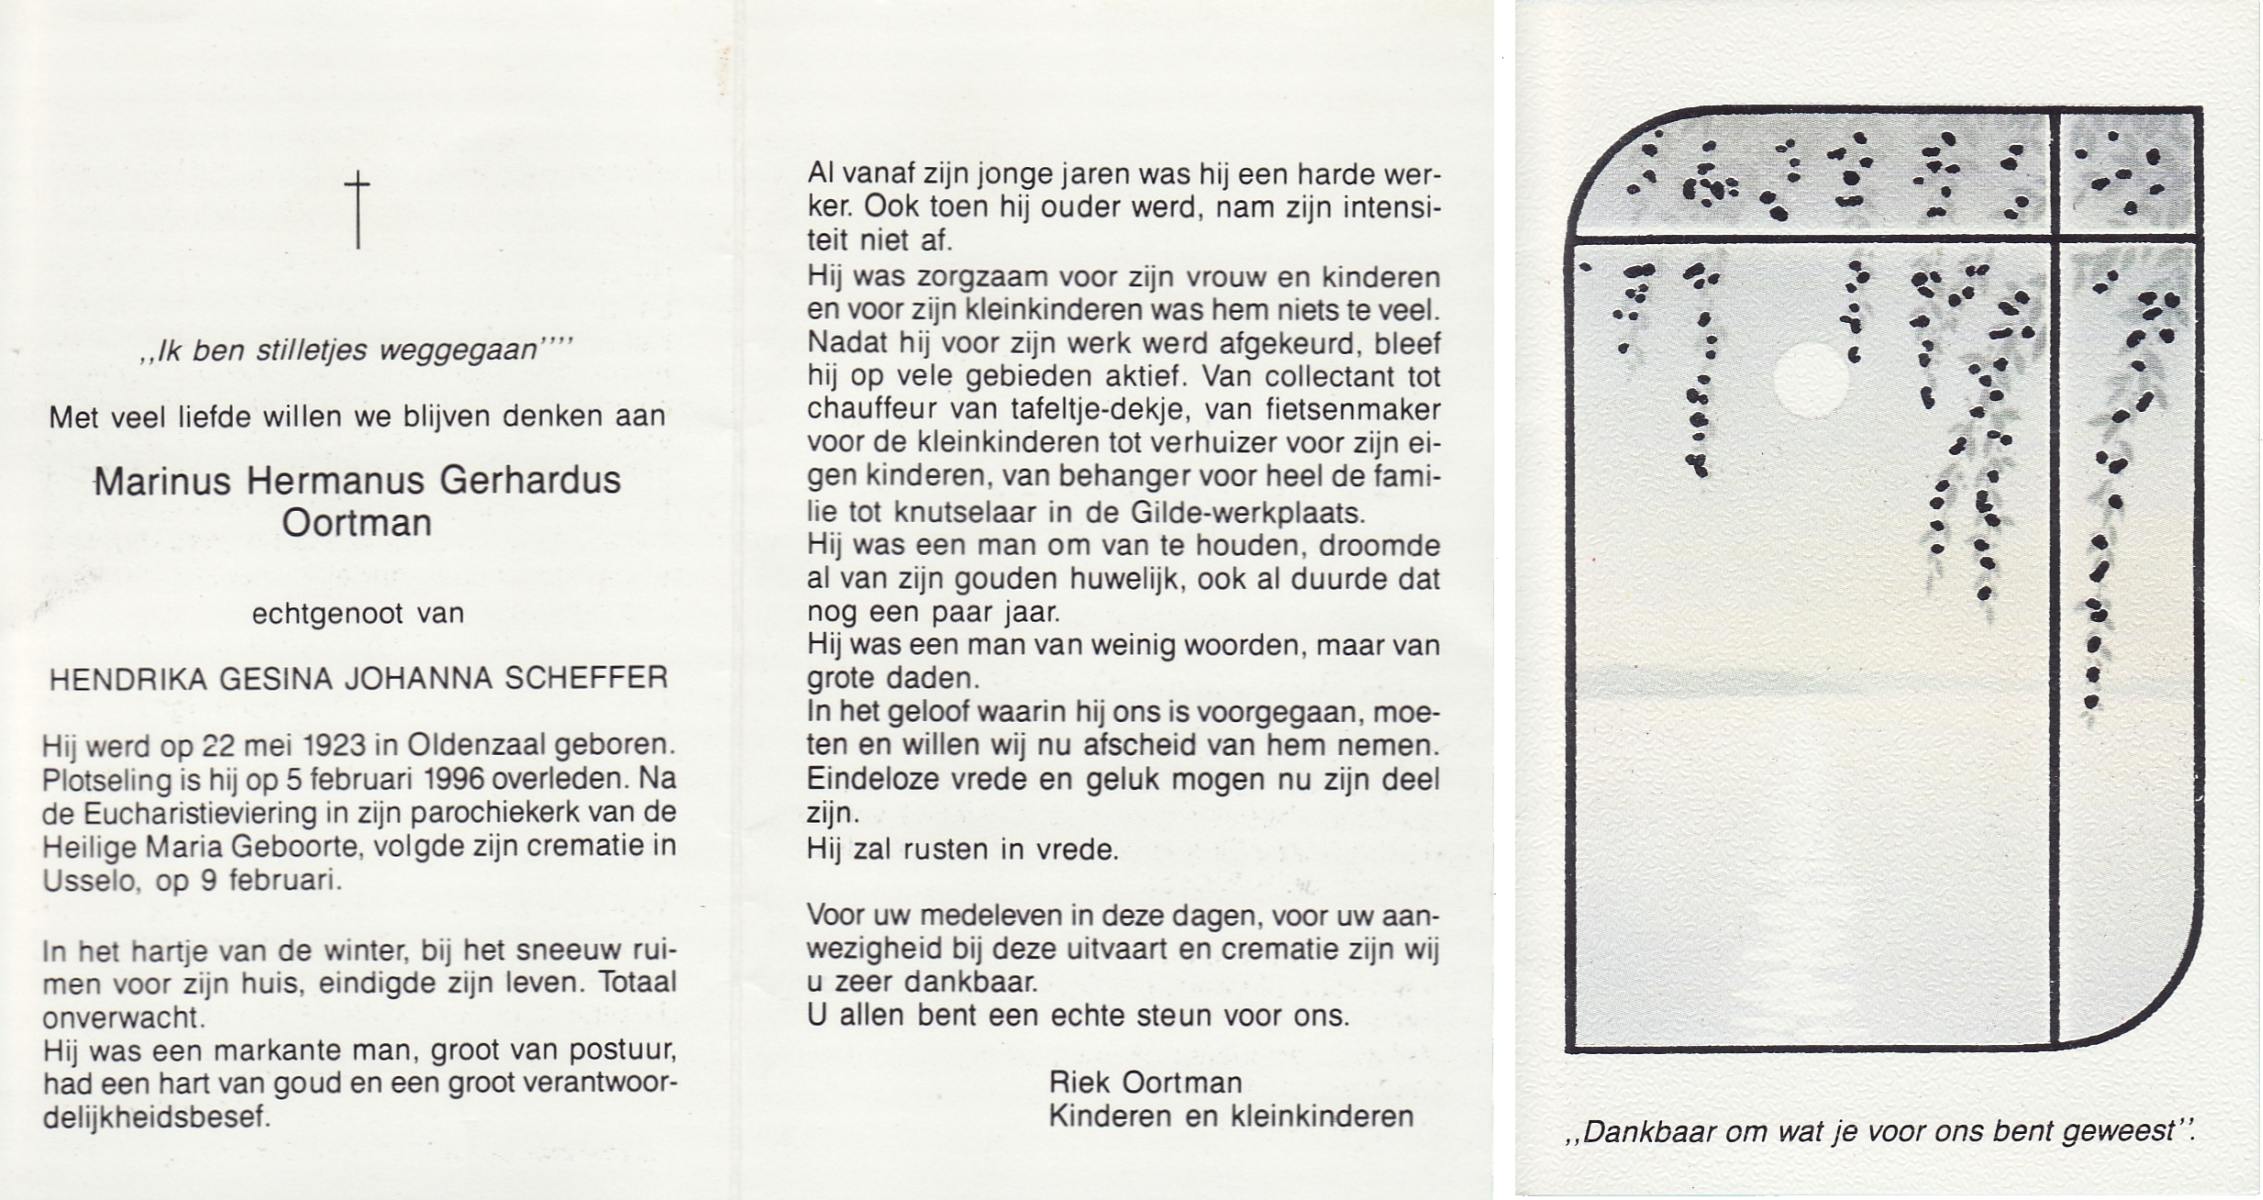 ,,Ik ben stilletjes weggegaan''''
Met veel liefde willen we blijven denken aan
Marinus Hermanus Gerhardus
Oortman
echtgenoot van
HENDRIKA GESINA JOHANNA SCHEFFER
Hij werd op 22 mei 1923 in Oldenzaal geboren.
Plotseling is hij op 5 februari 1996 overleden. Na
de Eucharistieviering in zijn parochiekerk van de
Heilige Maria Geboorte, volgde zijn crematie in
Usselo, op 9 februari.
In het hartje van de winter, bij het sneeuw rui-
men voor zijn huis, eindigde zijn leven. Totaal
onverwacht.
Hij was een markante man, groot van postuur,
had een hart van goud en een groot verantwoor-
delijkheidsbesef.
Al vanaf zijn jonge jaren was hij een harde wer-
ker. Ook toen hij ouder werd, nam zijn intensi-
teit niet af.
Hij was zorgzaam voor zijn vrouw en kinderen
en voor zijn kleinkinderen was hem niets te veel.
Nadat hij voor zijn werk werd afgekeurd, bleef
hij op vele gebieden aktief. Van collectant tot
chauffeur van tafeltje-dekje, van fietsenmaker
voor de kleinkinderen tot verhuizer voor zijn ei-
gen kinderen, van behanger voor heel de fami-
lie tot knutselaar in de Gilde-werkplaats.
Hij was een man om van te houden, droomde
al van zijn gouden huwelijk, ook al duurde dat
nog een paar jaar.
Hij was een man van weinig woorden, maar van
grote daden.
In het geloof waarin hij ons is voorgegaan, moe-
ten en willen wij nu afscheid van hem nemen.
Eindeloze vrede en geluk mogen nu zijn deel
zijn.
Hij zal rusten in vrede.
Voor uw medeleven in deze dagen, voor uw aan-
wezigheid bij deze uitvaart en crematie zijn wij
u zeer dankbaar.
U allen bent een echte steun voor ons.
Riek Oortman
Kinderen en kleinkinderen
,,Dankbaar om wat je voor ons bent geweest''.